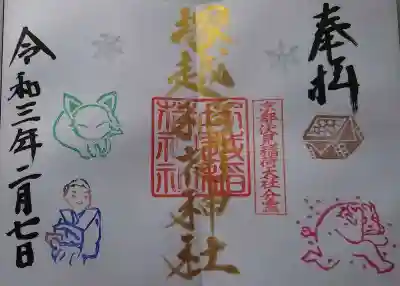 奉拝
京都伏見稲荷大社分霊
塚越稲荷神社
令和三年二月七日